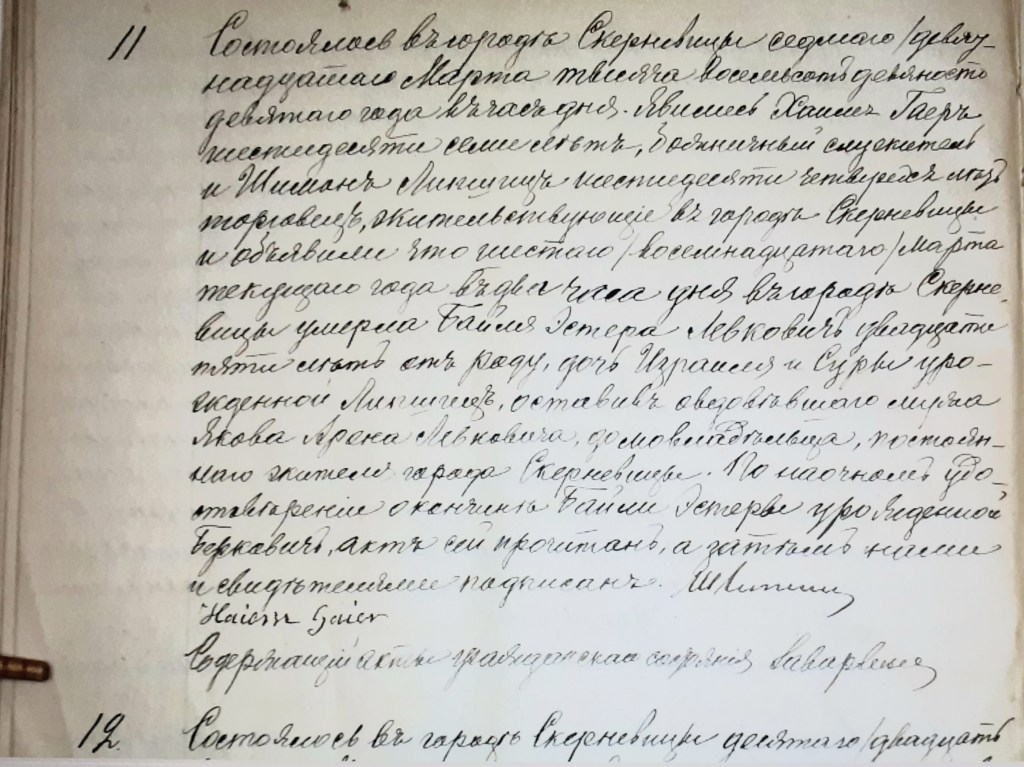 11 Состоялось въ городѣ Скерневицы седмаго /девят-
надцатаго Марта тысяча восемьсотъ девяносто
девятаго года въ часъ дня. Явились Хаимъ Гаеръ,
шестидесяти семи лѣтъ, больничный служитель
и Шимонъ Липшицъ шестидесяти четырехъ лѣтъ
торговецъ, жительствующіе въ городѣ Скерневицы
и объявили что шестаго /восемнадцатаго/ Марта
текущаго года въ два часа дня въ городѣ Скерне-
вицы умерла Байля Эстера Левковичъ двадцати
пяти лѣтъ отъ роду, дочь Израиля и Суры уро-
жденной Липшицъ, оставивъ овдовѣвшаго мужа
Якова Арона Левковича, домовладѣльца, постоян-
наго жителя города Скерневицы. По наочномъ удо-
стовѣреніи о кончинѣ Байли Эстеры урожденной
Беркович, актъ сей прочитанъ, а затѣмъ нами
и свидѣтелями подписанъ.
Haim Gaier
Содержащій акты гражданскаго состоянія
12. Состоялось въ городѣ Скерневицы десятаго /двадцать